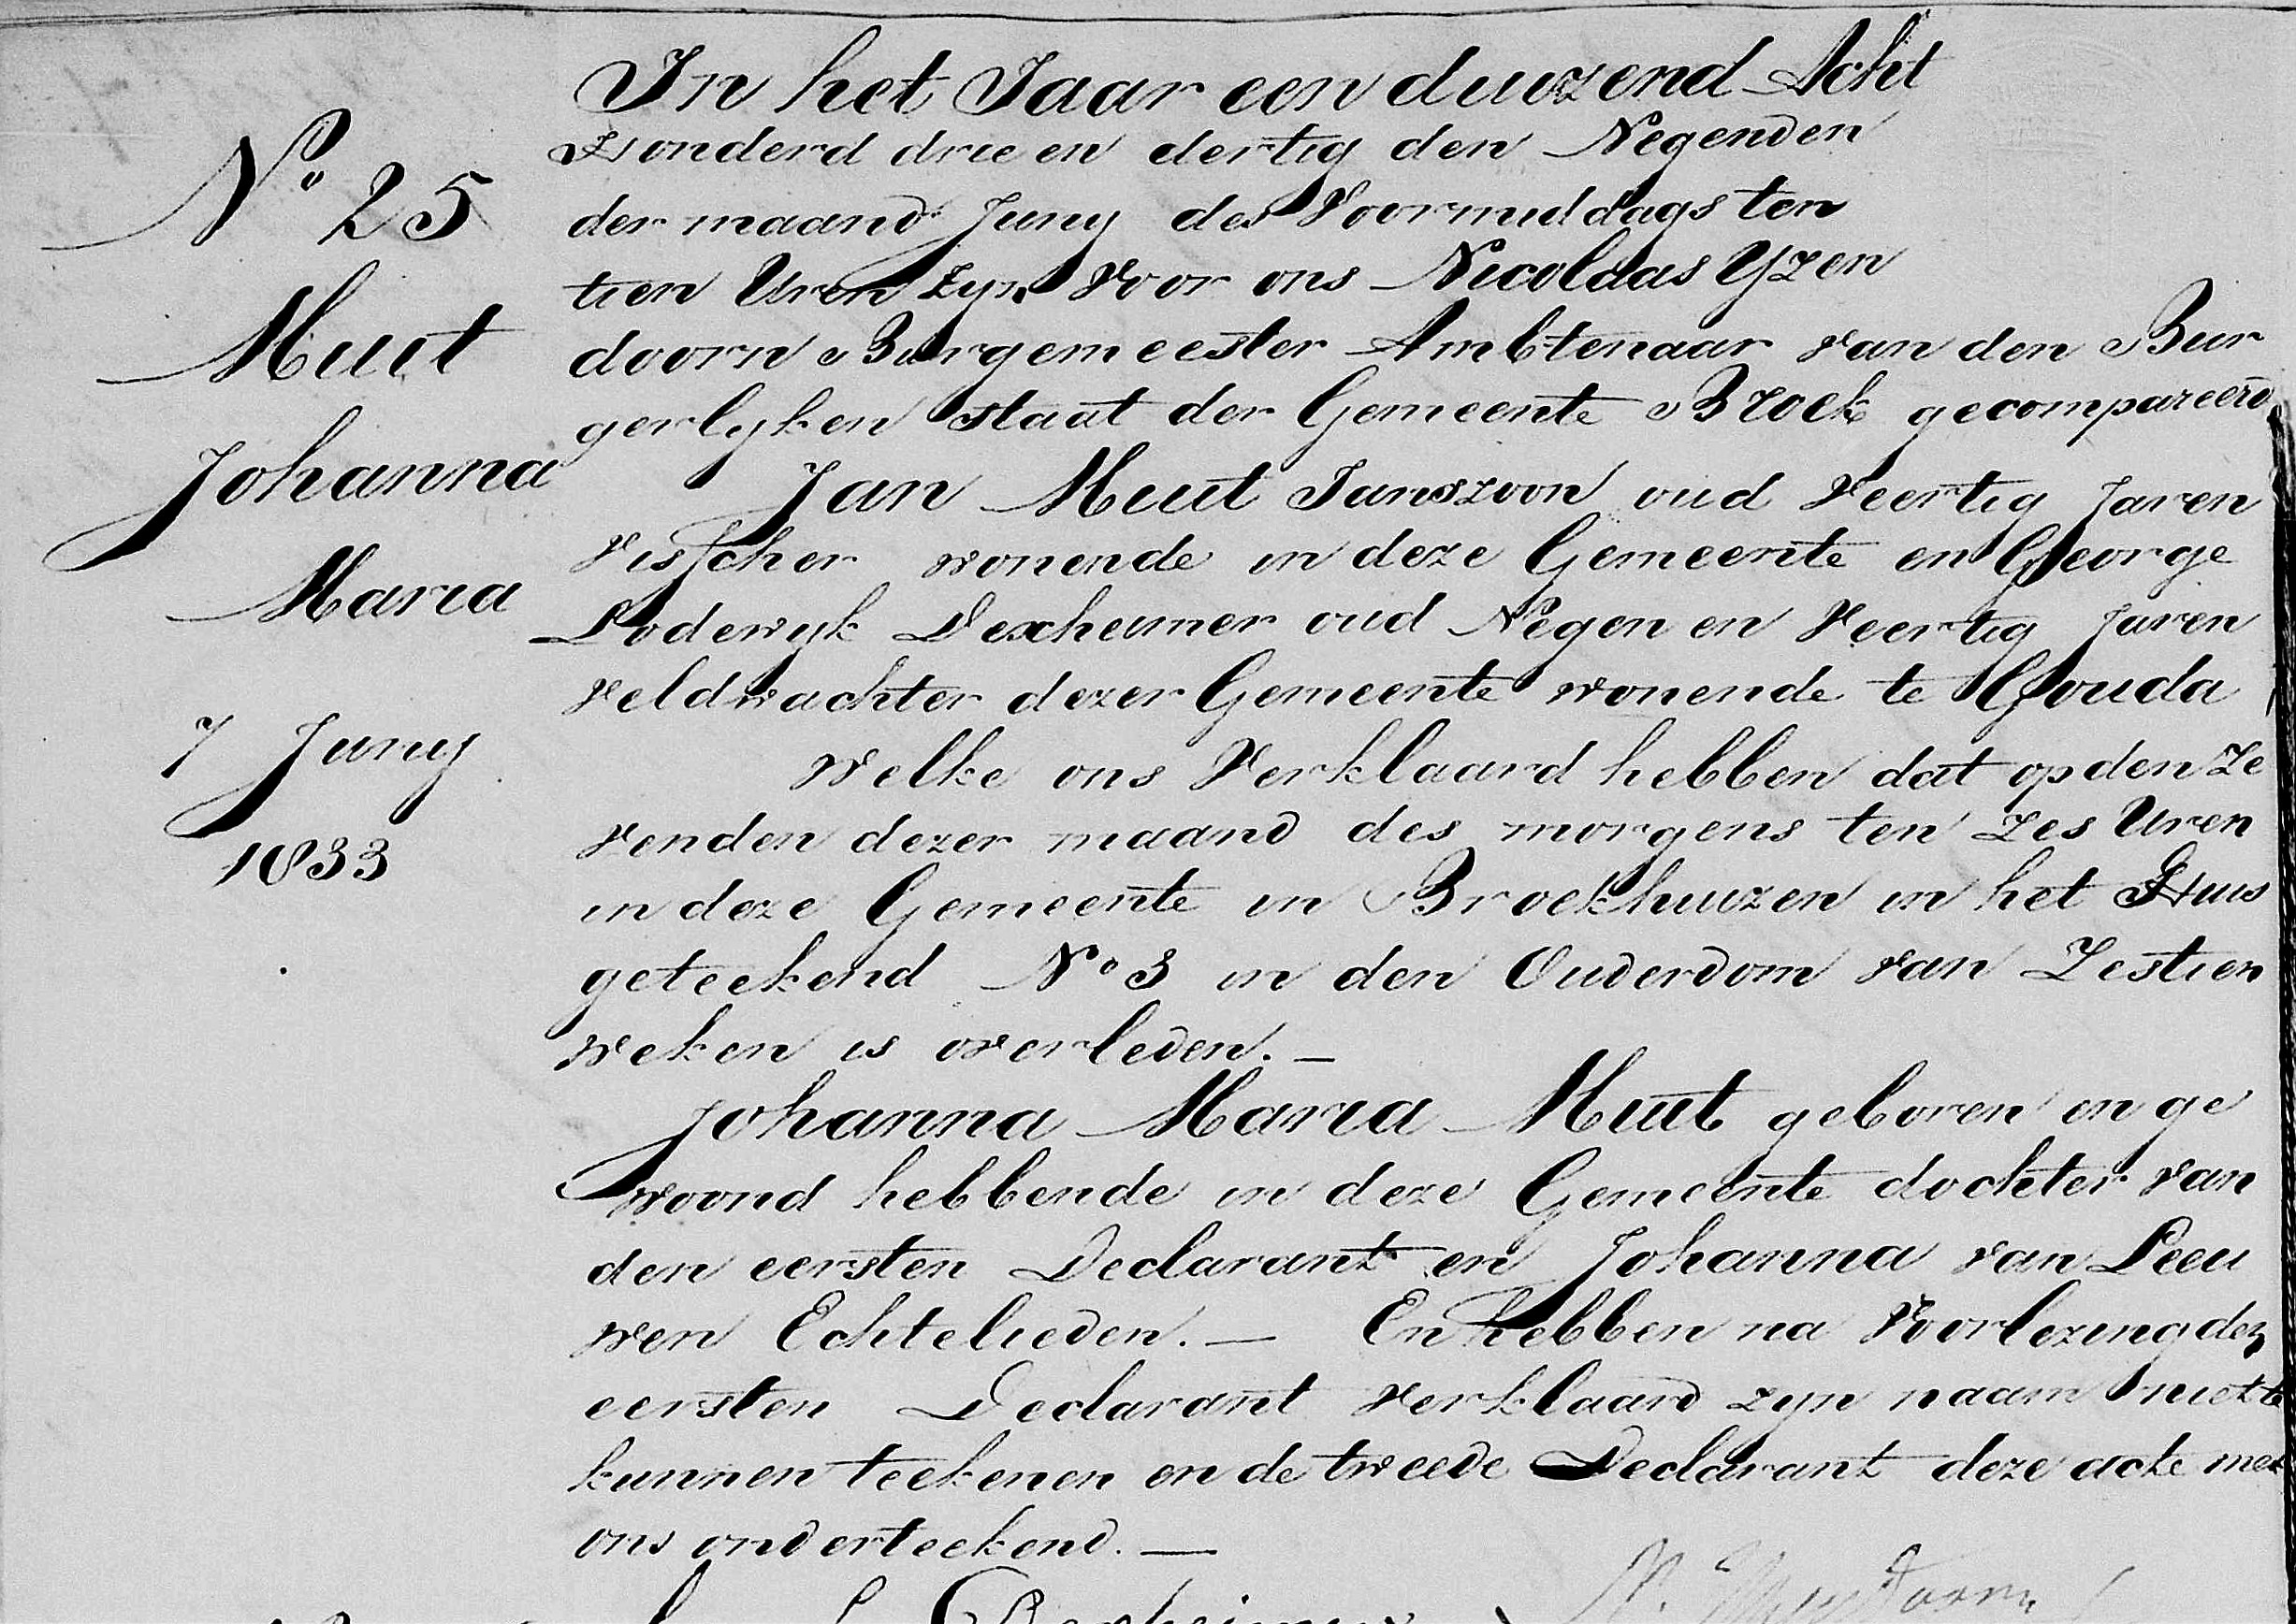 No 25
Muit
Johanna
Maria
7 Juny
1833
In het Jaar een duizend Acht
Honderd drie en dertig den Negenden
der maand Juny des Voormiddags ten
tien Uren zyn Voor ons Nicolaas Yzen
doorn Burgemeester Ambtenaar van den Bur
gerlyken staat der Gemeente Broek gecompareerd
Jan Muit Janszoon oud Veertig Jaren
Visscher wonende in deze Gemeente en George
Lodewyk Dexheimer oud Negen en Veertig Jaren
veldwachter dezer Gemeente wonende te Gouda
Welke ons Verklaard hebben dat op den Ze
venden dezer maand des morgens ten zes Uren
in deze Gemeente in Broekhuizen in het Huis
geteekend No 3 in den Ouderdom van Zestien
weken is overleden. —
Johanna Maria Muit geboren en ge
woond hebbende in deze Gemeente dochter van
den eersten Declarant en Johanna van Leeu
wen Echtelieden. — En hebben na Voorlezing den
eersten Declarant verklaard zyn naam niet te
kunnen teekenen en de tweede Declarant deze acte met
ons onderteekend. —
Dexheimer